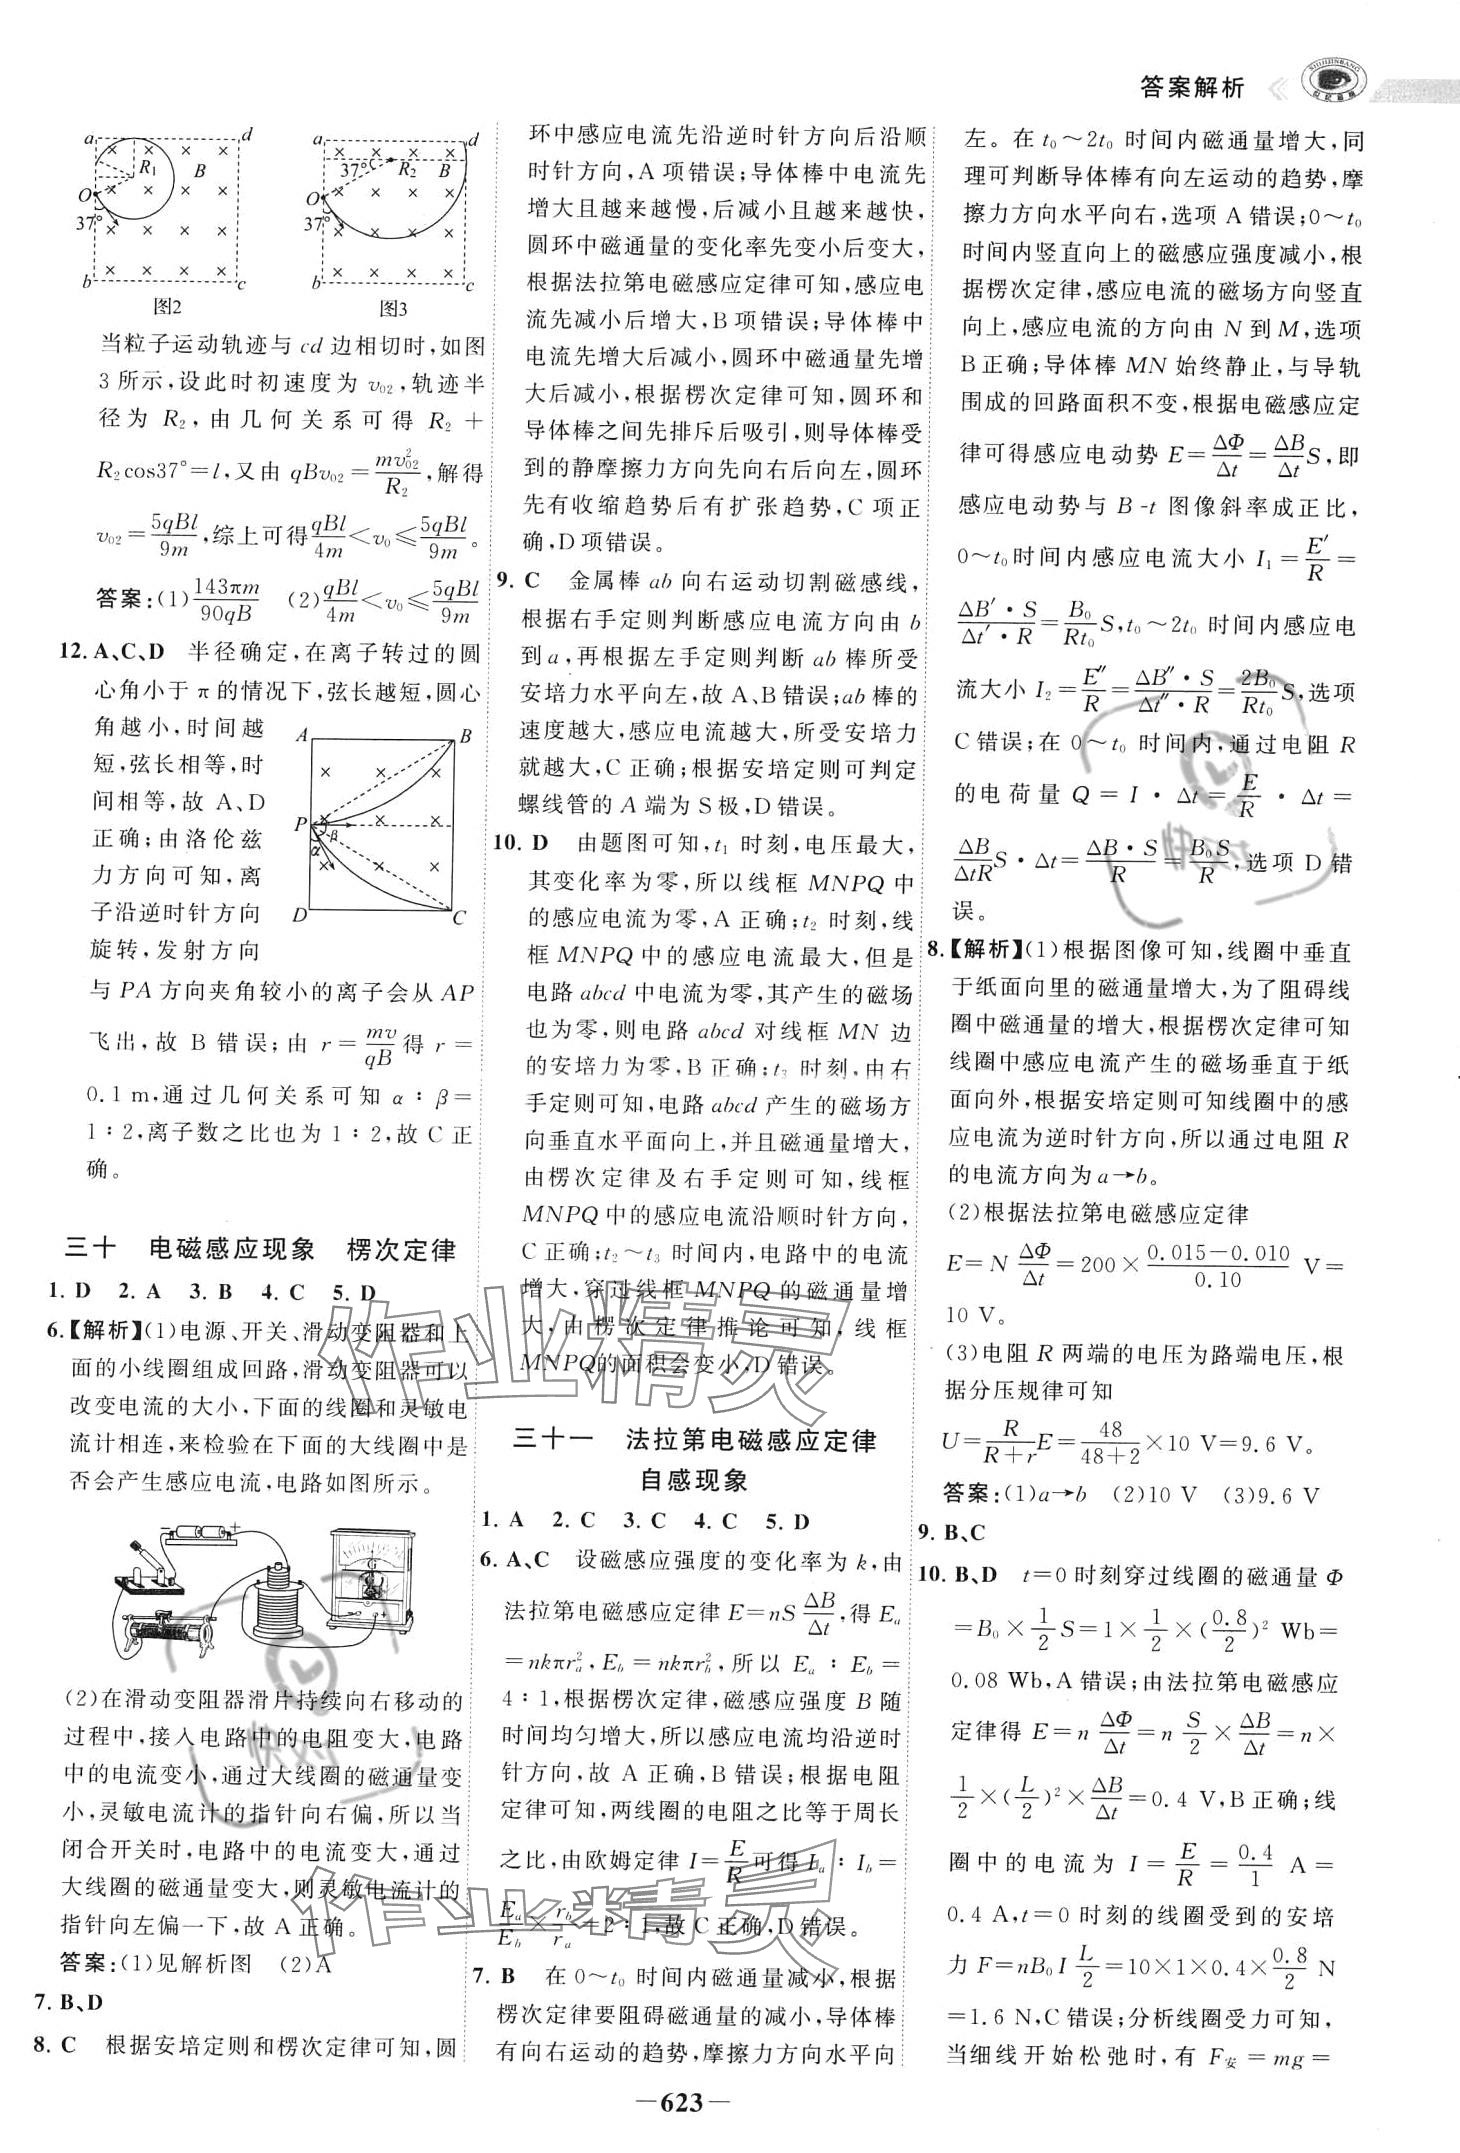 答案解析
a
d
R₁
B
O
37°
b
c
图2
a
d
37°
R₂
B
O
37°
b
c
图3
当粒子运动轨迹与 cd 边相切时,如图
3所示,设此时初速度为 v₀₂,轨迹半
径为 R₂,由几何关系可得 R₂+
R₂cos37°=l,又由 qBv₀₂=mv₀₂²/R₂,解得
v₀₂=5qBl/9m,综上可得qBl/4m<v₀≤5qBl/9m。
答案:(1)143πm/90qB (2)qBl/4m<v₀≤5qBl/9m
12. A、C、D 半径确定,在离子转过的圆
心角小于π的情况下,弦长越短,圆心
角越小,时间越
短,弦长相等,时
间相等,故 A、D
正确;由洛伦兹
力方向可知,离
子沿逆时针方向
旋转,发射方向
A
B
P
β
α
D
C
与 PA 方向夹角较小的离子会从 AP
飞出,故 B 错误;由 r=mv/qB得 r=
0.1 m,通过几何关系可知 α∶β=
1∶2,离子数之比也为 1∶2,故 C 正
确。
三十 电磁感应现象 楞次定律
1. D 2. A 3. B 4. C 5. D
6.【解析】(1)电源、开关、滑动变阻器和上
面的小线圈组成回路,滑动变阻器可以
改变电流的大小,下面的线圈和灵敏电
流计相连,来检验在下面的大线圈中是
否会产生感应电流,电路如图所示。
+
G
(2)在滑动变阻器滑片持续向右移动的
过程中,接入电路中的电阻变大,电路
中的电流变小,通过大线圈的磁通量变
小,灵敏电流计的指针向右偏,所以当
闭合开关时,电路中的电流变大,通过
大线圈的磁通量变大,则灵敏电流计的
指针向左偏一下,故 A 正确。
答案:(1)见解析图 (2)A
7. B、D
8. C 根据安培定则和楞次定律可知,圆
环中感应电流先沿逆时针方向后沿顺
时针方向,A项错误;导体棒中电流先
增大且越来越慢,后减小且越来越快,
圆环中磁通量的变化率先变小后变大,
根据法拉第电磁感应定律可知,感应电
流先减小后增大,B项错误;导体棒中
电流先增大后减小,圆环中磁通量先增
大后减小,根据楞次定律可知,圆环和
导体棒之间先排斥后吸引,则导体棒受
到的静摩擦力方向先向右后向左,圆环
先有收缩趋势后有扩张趋势,C 项正
确,D项错误。
9. C 金属棒 ab 向右运动切割磁感线,
根据右手定则判断感应电流方向由 b
到a,再根据左手定则判断 ab 棒所受
安培力水平向左,故 A、B错误;ab棒的
速度越大,感应电流越大,所受安培力
就越大,C 正确;根据安培定则可判定
螺线管的 A 端为 S极,D错误。
10. D 由题图可知,t₁ 时刻,电压最大,
其变化率为零,所以线框 MNPQ 中
的感应电流为零,A 正确;t₂ 时刻,线
框 MNPQ 中的感应电流最大,但是
电路 abcd 中电流为零,其产生的磁场
也为零,则电路 abcd 对线框 MN 边
的安培力为零,B 正确;t₃ 时刻,由右
手定则可知,电路 abcd 产生的磁场方
向垂直水平面向上,并且磁通量增大,
由楞次定律及右手定则可知,线框
MNPQ 中的感应电流沿顺时针方向,
C 正确;t₂～t₃ 时间内,电路中的电流
增大,穿过线框 MNPQ 的磁通量增
大,由楞次定律推论可知,线框
MNPQ的面积会变小,D 错误。
三十一 法拉第电磁感应定律
自感现象
1. A 2. C 3. C 4. C 5. D
6. A、C 设磁感应强度的变化率为 k,由
法拉第电磁感应定律 E=nS ΔB/Δt,得 Eₐ
=nkπrₐ²,E_b=nkπr_b²,所以 Eₐ∶E_b=
4∶1,根据楞次定律,磁感应强度 B 随
时间均匀增大,所以感应电流均沿逆时
针方向,故 A 正确,B错误;根据电阻
定律可知,两线圈的电阻之比等于周长
之比,由欧姆定律 I=E/R可得 Iₐ∶I_b=
Eₐ/E_b×r_b/rₐ=2∶1,故C正确,D错误。
7. B 在 0～t₀ 时间内磁通量减小,根据
楞次定律要阻碍磁通量的减小,导体棒
有向右运动的趋势,摩擦力方向水平向
左。在 t₀～2t₀ 时间内磁通量增大,同
理可判断导体棒有向左运动的趋势,摩
擦力方向水平向右,选项 A 错误;0～t₀
时间内竖直向上的磁感应强度减小,根
据楞次定律,感应电流的磁场方向竖直
向上,感应电流的方向由 N 到 M,选项
B 正确;导体棒 MN 始终静止,与导轨
围成的回路面积不变,根据电磁感应定
律可得感应电动势 E=ΔΦ/Δt=ΔB/ΔtS,即
感应电动势与 B-t 图像斜率成正比,
0～t₀时间内感应电流大小 I₁=E′/R=
ΔB′·S/Δt′·R=B₀/Rt₀S,t₀～2t₀ 时间内感应电
流大小 I₂=E″/R=ΔB″·S/Δt″·R=2B₀/Rt₀S,选项
C错误;在 0～t₀ 时间内,通过电阻 R
的电荷量 Q=I·Δt=E/R·Δt=
ΔB/ΔtRS·Δt=ΔB·S/R=B₀S/R,选项 D 错
误。
8.【解析】(1)根据图像可知,线圈中垂直
于纸面向里的磁通量增大,为了阻碍线
圈中磁通量的增大,根据楞次定律可知
线圈中感应电流产生的磁场垂直于纸
面向外,根据安培定则可知线圈中的感
应电流为逆时针方向,所以通过电阻 R
的电流方向为 a→b。
(2)根据法拉第电磁感应定律
E=N ΔΦ/Δt=200×0.015−0.010/0.10 V=
10 V。
(3)电阻 R 两端的电压为路端电压,根
据分压规律可知
U=R/R+rE=48/48+2×10 V=9.6 V。
答案:(1)a→b (2)10 V (3)9.6 V
9. B、C
10. B、D t=0 时刻穿过线圈的磁通量 Φ
=B₀×1/2S=1×1/2×(0.8/2)² Wb=
0.08 Wb,A 错误;由法拉第电磁感应
定律得 E=n ΔΦ/Δt=n S/2×ΔB/Δt=n×
1/2×(L/2)²×ΔB/Δt=0.4 V,B正确;线
圈中的电流为 I=E/R=0.4/1 A=
0.4 A,t=0 时刻的线圈受到的安培
力 F=nB₀I L/2=10×1×0.4×0.8/2 N
=1.6 N,C错误;分析线圈受力可知,
当细线开始松弛时,有 F安=mg=
—623—
作业精灵
作业精灵
快对
快对